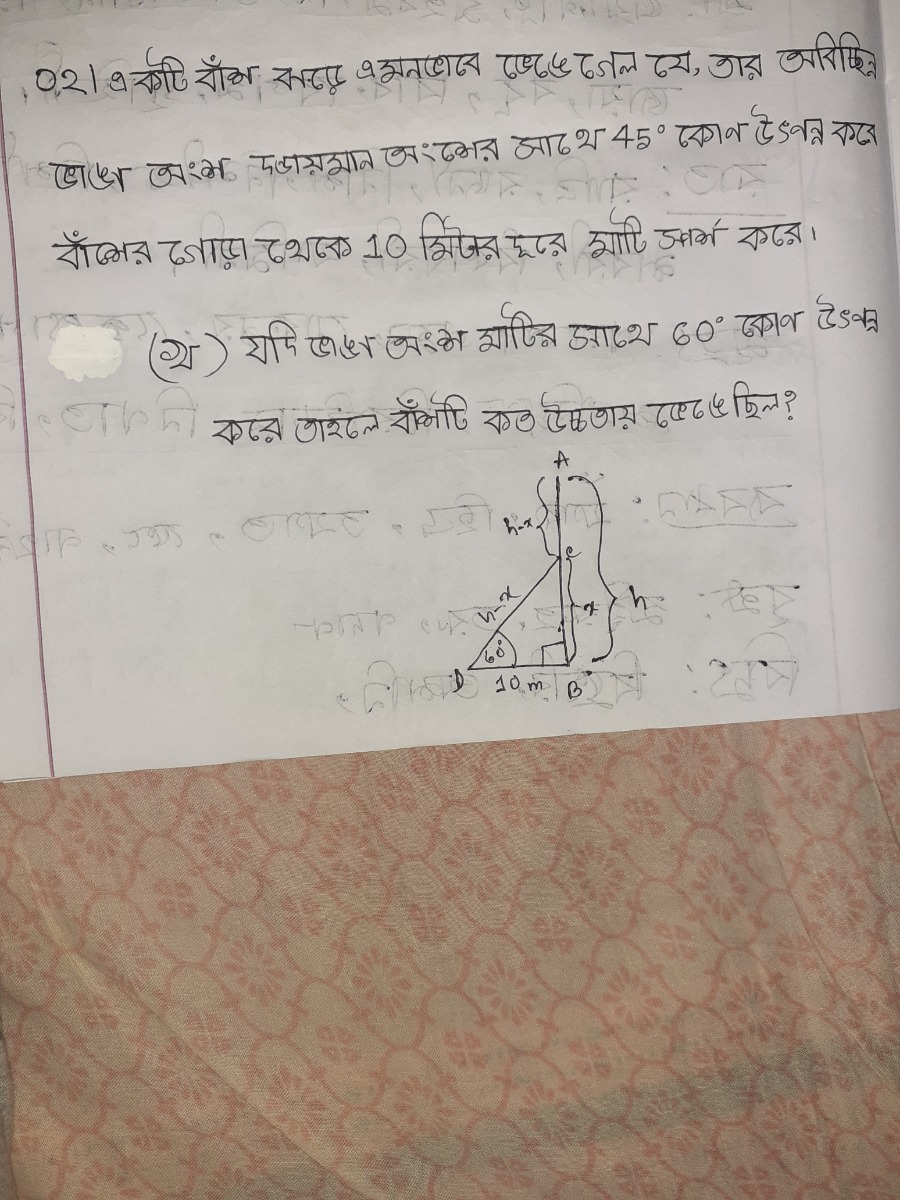 ০২। একটি বাঁশ ঝড়ে এমনভাবে ভেঙে গেল যে, তার অবিচ্ছিন্ন
ভাঙা অংশ দন্ডায়মান অংশের সাথে 45° কোণ উৎপন্ন করে
বাঁশের গোড়া থেকে 10 মিটার দূরে মাটি স্পর্শ করে।
(গ) যদি ভাঙা অংশ মাটির সাথে 60° কোণ উৎপন্ন
করে তাহলে বাঁশটি কত উচ্চতায় ভেঙেছিল?
A
h-x
C
h-x
x
h
60°
D 10 m B